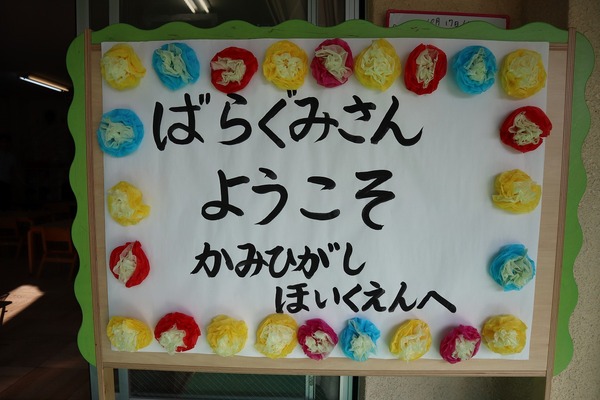 ばらぐみさん
ようこそ
かみひがし
ほいくえんへ